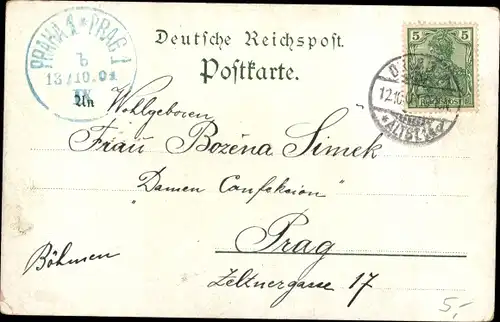 PRAHA 1 * PRAG 1
b
13/10.01
IX
Deutsche Reichspost.
Postkarte.
5 5
12.10
*ALTST.14d
An
Wohlgeboren
Frau Božena Šimek
"Damen Confektion"
Prag
Böhmen
Zeltnergasse 17
5,-